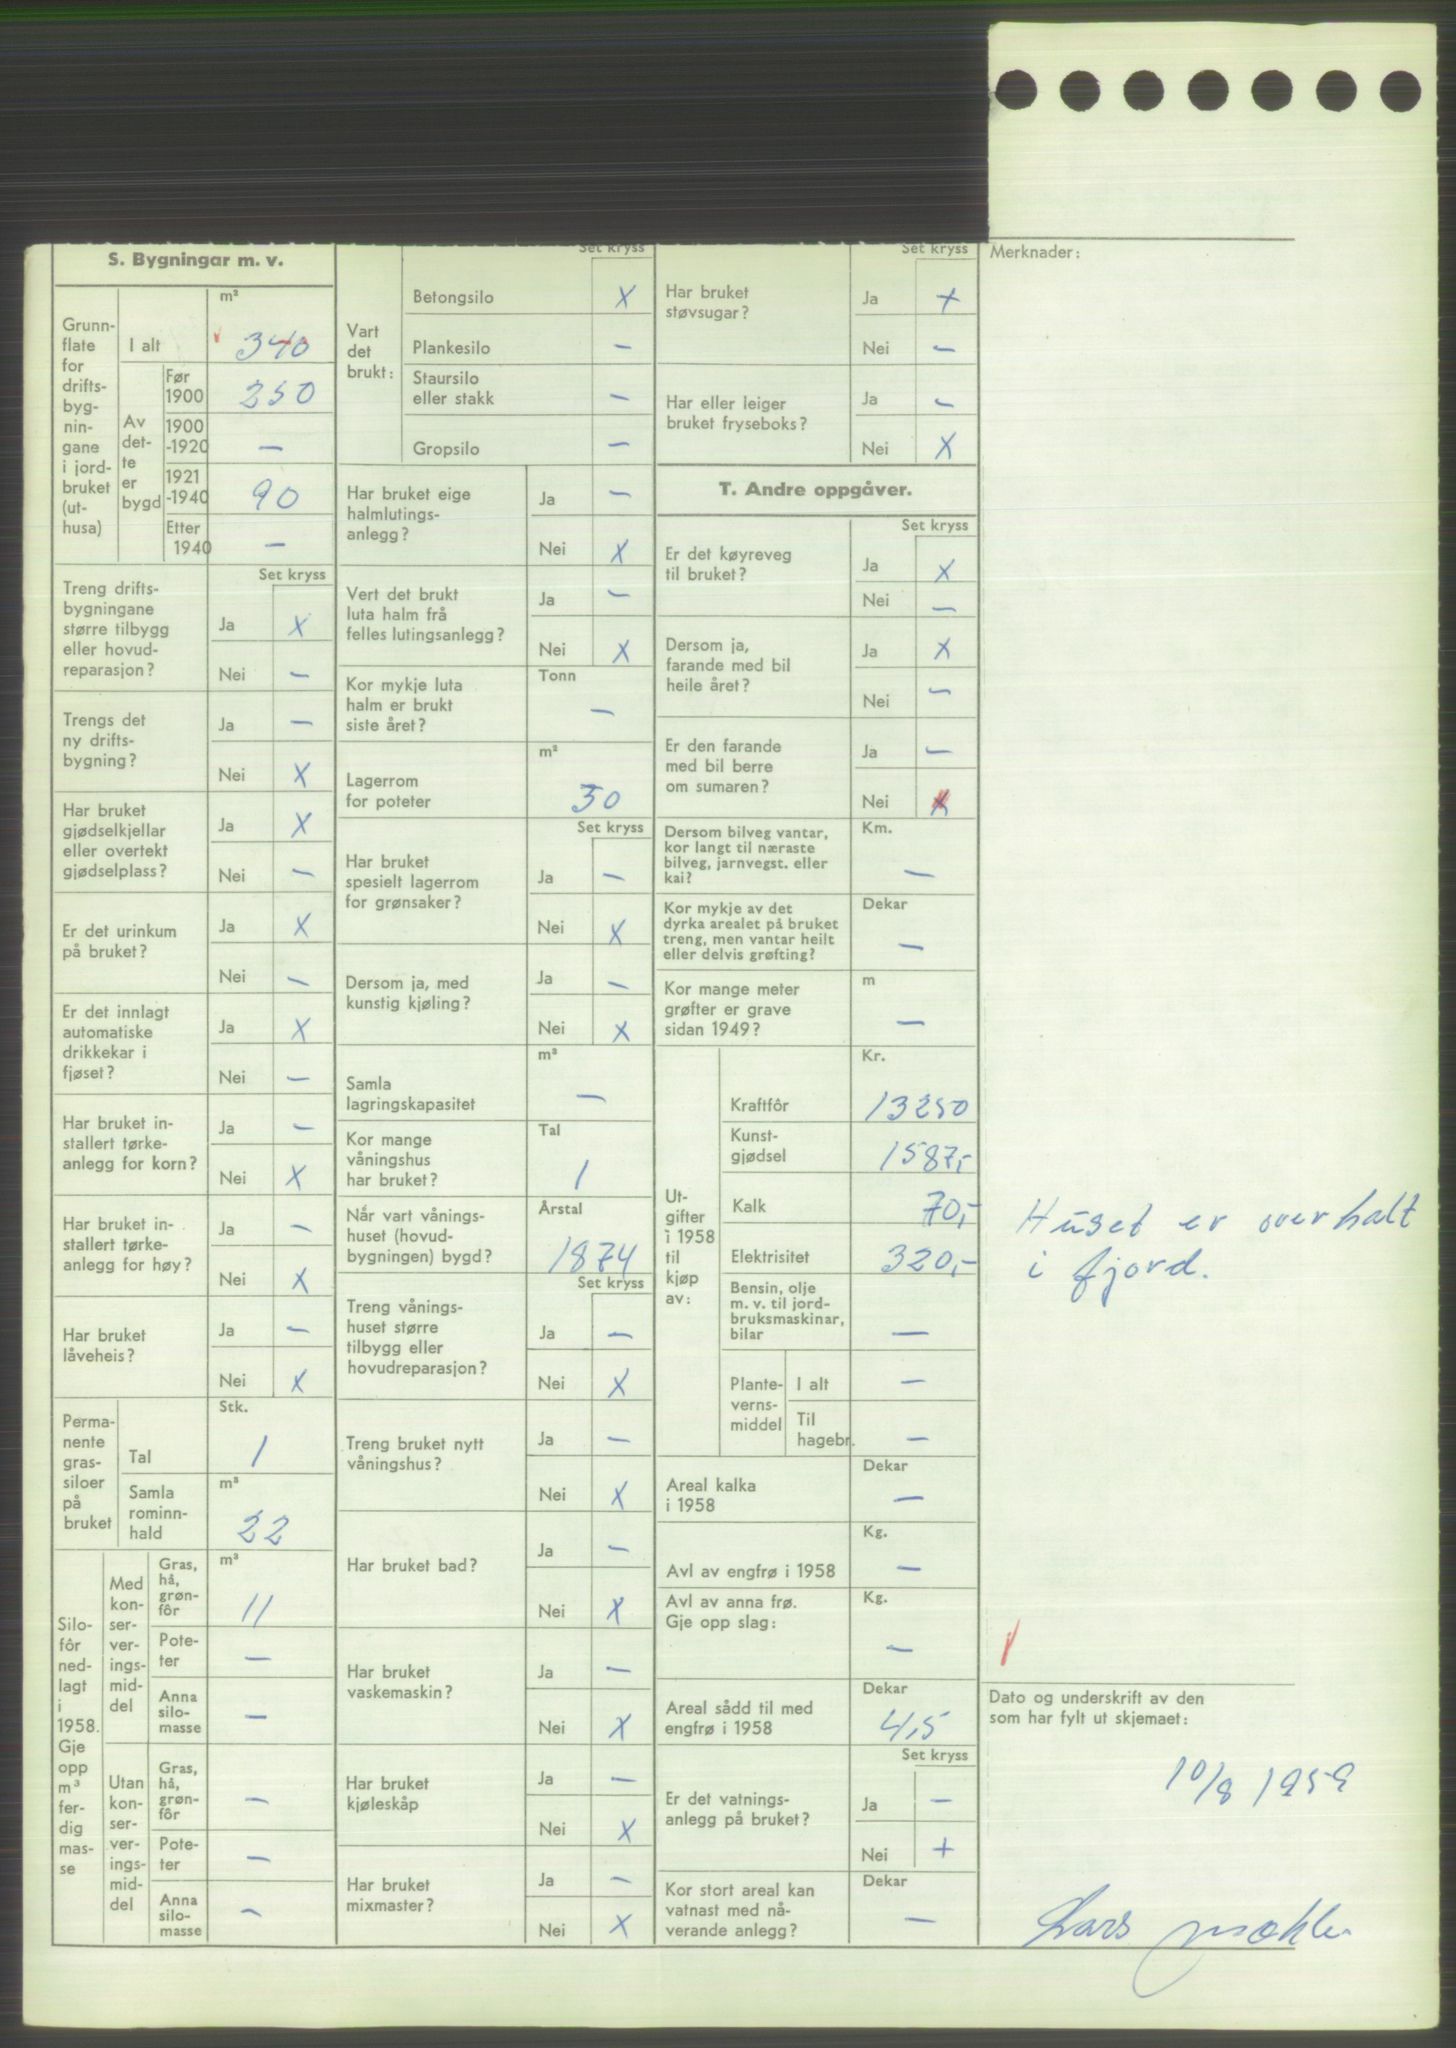 S. Bygningar m. v.
Grunn-
flate
for
drifts-
byg-
nin-
gane
i jord-
bruket
(ut-
husa)
m²
I alt 340
Av
det-
te
er
bygd
Før
1900 250
1900
-1920 —
1921
-1940 90
Etter
1940 —
Set kryss
Treng drifts-
bygningane
større tilbygg
eller hovud-
reparasjon?
Ja X
Nei —
Trengs det
ny drifts-
bygning?
Ja —
Nei X
Har bruket
gjødselkjellar
eller overtekt
gjødselplass?
Ja X
Nei —
Er det urinkum
på bruket?
Ja X
Nei —
Er det innlagt
automatiske
drikkekar i
fjøset?
Ja X
Nei —
Har bruket in-
stallert tørke-
anlegg for korn?
Ja —
Nei X
Har bruket in-
stallert tørke-
anlegg for høy?
Ja —
Nei X
Har bruket
låveheis?
Ja —
Nei X
Perma-
nente
gras-
siloer
på
bruket
Stk.
Tal 1
m³
Samla
rominn-
hald 22
Silo-
fôr
ned-
lagt
i
1958.
Gje
opp
m³
fer-
dig
mas-
se
Med
kon-
ser-
ver-
ings-
mid-
del
m³
Gras,
hå,
grøn-
fôr 11
Pote-
ter —
Anna
silo-
masse —
Utan
kon-
ser-
ver-
ings-
mid-
del
Gras,
hå,
grøn-
fôr —
Pote-
ter —
Anna
silo-
masse —
Set kryss
Vart
det
brukt:
Betongsilo X
Plankesilo —
Staursilo
eller stakk —
Gropsilo —
Har bruket eige
halmlutings-
anlegg?
Ja —
Nei X
Vert det brukt
luta halm frå
felles lutingsanlegg?
Ja —
Nei X
Kor mykje luta
halm er brukt
siste året?
Tonn
—
Lagerrom
for poteter
m²
30
Set kryss
Har bruket
spesielt lagerrom
for grønsaker?
Ja —
Nei X
Dersom ja, med
kunstig kjøling?
Ja —
Nei X
Samla
lagringskapasitet
m³
—
Kor mange
våningshus
har bruket?
Tal
1
Når vart vånings-
huset (hovud-
bygningen) bygd?
Årstal
1874
Set kryss
Treng vånings-
huset større
tilbygg eller
hovudreparasjon?
Ja —
Nei X
Treng bruket nytt
våningshus?
Ja —
Nei X
Har bruket bad?
Ja —
Nei X
Har bruket
vaskemaskin?
Ja —
Nei X
Har bruket
kjøleskåp
Ja —
Nei X
Har bruket
mixmaster?
Ja —
Nei X
Set kryss
Har bruket
støvsugar?
Ja +
Nei —
Har eller leiger
bruket fryseboks?
Ja —
Nei X
T. Andre oppgåver.
Set kryss
Er det køyreveg
til bruket?
Ja X
Nei —
Dersom ja,
farande med bil
heile året?
Ja X
Nei —
Er den farande
med bil berre
om sumaren?
Ja —
Nei X
Dersom bilveg vantar,
kor langt til næraste
bilveg, jarnvegst. eller
kai?
Km.
—
Kor mykje av det
dyrka arealet på bruket
treng, men vantar heilt
eller delvis grøfting?
Dekar
—
Kor mange meter
grøfter er grave
sidan 1949?
m
—
Ut-
gifter
i 1958
til
kjøp
av:
Kr.
Kraftfôr 13250
Kunst-
gjødsel 1587,-
Kalk 70,-
Elektrisitet 320,-
Bensin, olje
m. v. til jord-
bruksmaskinar,
bilar —
Plante-
verns-
middel
I alt —
Til
hagebr. —
Areal kalka
i 1958
Dekar
—
Avl av engfrø i 1958
Kg.
—
Avl av anna frø.
Gje opp slag:
Kg.
—
Areal sådd til med
engfrø i 1958
Dekar
4,5
Set kryss
Er det vatnings-
anlegg på bruket?
Ja —
Nei +
Kor stort areal kan
vatnast med nå-
verande anlegg?
Dekar
—
Merknader:
Huset er overhalt
i fjord.
Dato og underskrift av den
som har fylt ut skjemaet:
10/8 1959
Lars